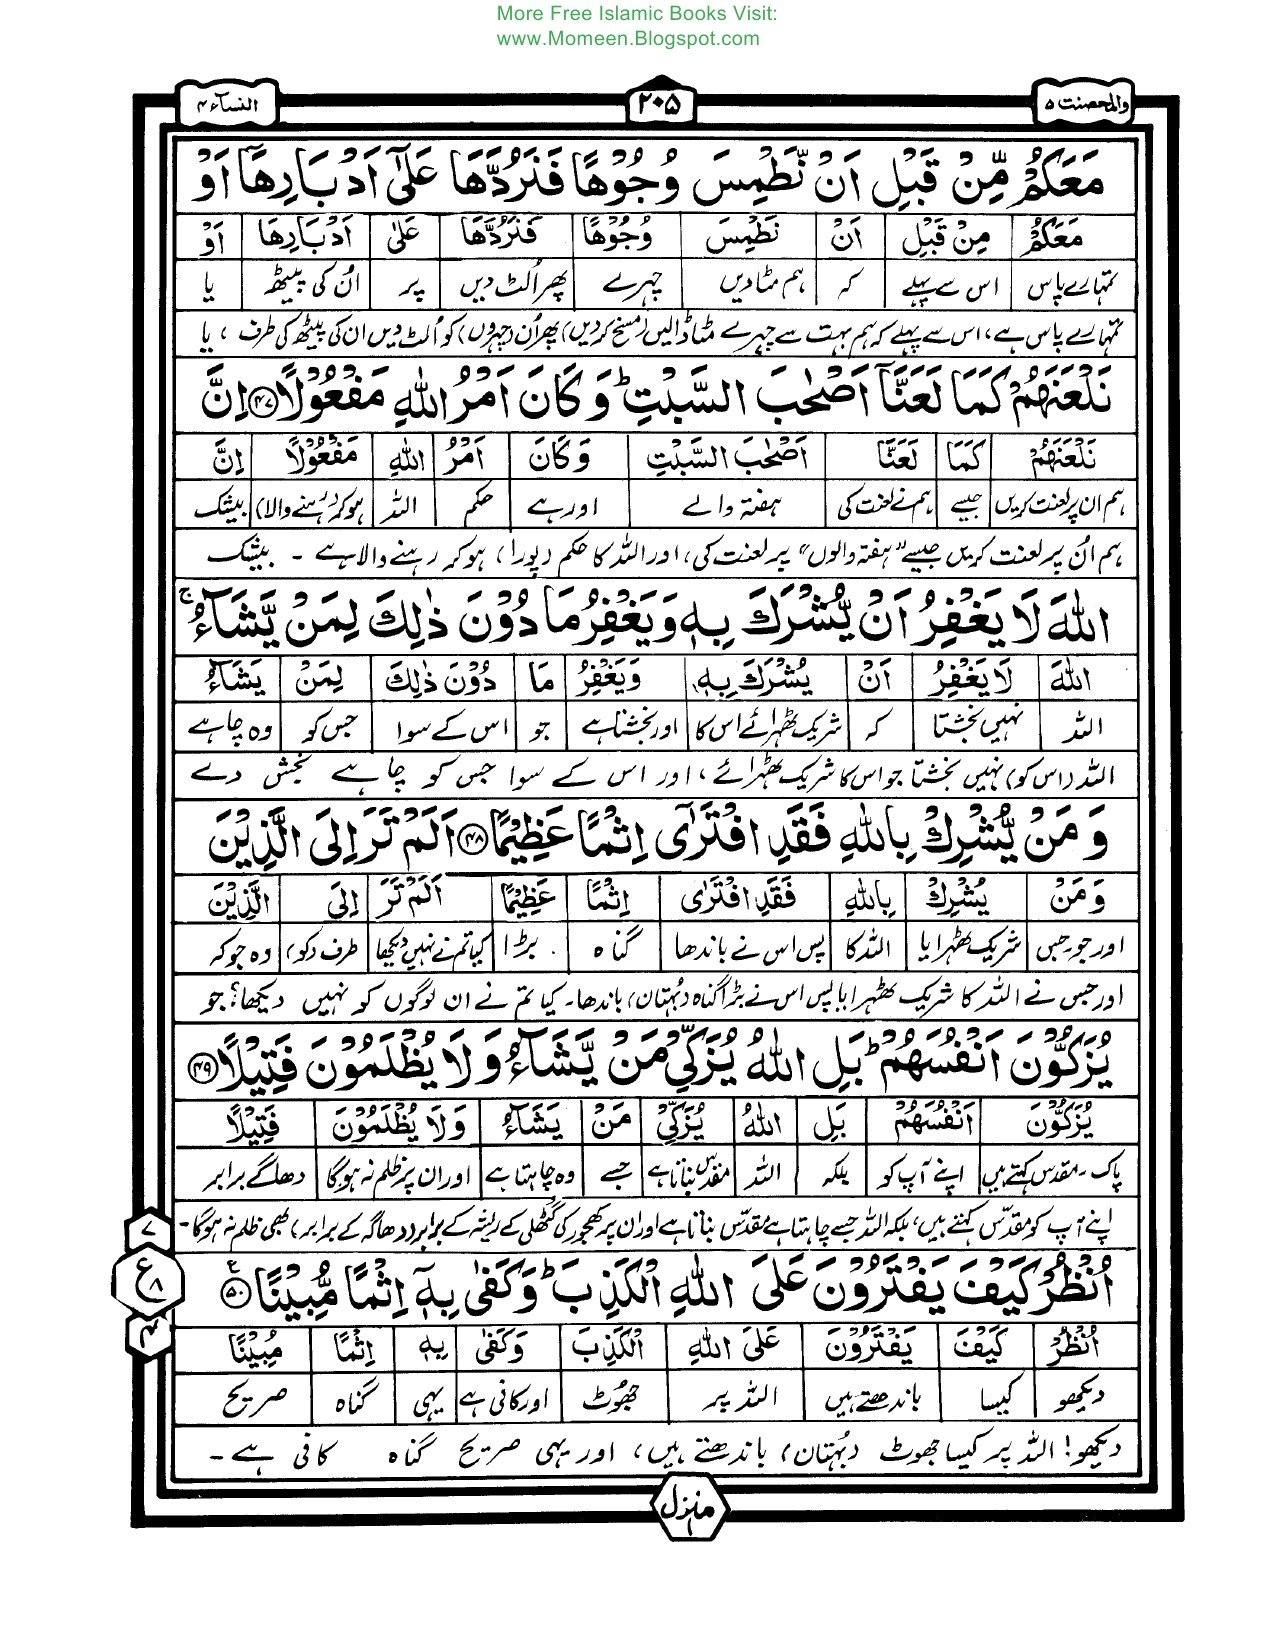 More Free Islamic Books Visit:
www.Momeen.Blogspot.com
والمحصنت ۵
۲۰۵
النسآء ۴
مَعَكُمْ مِّنْ قَبْلِ اَنْ نَّطْمِسَ وُجُوْهًا فَنَرُدَّهَا عَلٰٓى اَدْبَارِهَآ اَوْ
مَعَكُمْ مِنْ قَبْلِ اَنْ نَطْمِسَ وُجُوْهًا فَنَرُدَّهَا عَلٰى اَدْبَارِهَا اَوْ
تمہارے پاس اس سے پہلے کہ ہم مٹا دیں چہرے پھر اُلٹ دیں پر اُن کی پیٹھ یا
تمہارے پاس ہے، اس سے پہلے کہ ہم بہت سے چہرے مٹا ڈالیں (مسخ کر دیں) پھر اُن (چہروں) کو اُلٹ دیں ان کی پیٹھ کی طرف ، یا
نَلْعَنَهُمْ كَمَا لَعَنَّآ اَصْحٰبَ السَّبْتِ ؕ وَكَانَ اَمْرُ اللّٰهِ مَفْعُوْلًا ۴۷ اِنَّ
نَلْعَنَهُمْ كَمَا لَعَنَّا اَصْحٰبَ السَّبْتِ وَكَانَ اَمْرُ اللّٰهِ مَفْعُوْلًا اِنَّ
ہم ان پر لعنت کریں جیسے ہم نے لعنت کی ہفتہ والے اور ہے حکم اللہ ہو کر (رہنے والا) بیشک
ہم اُن پر لعنت کریں جیسے "ہفتہ والوں" پر لعنت کی، اور اللہ کا حکم (پورا) ہو کر رہنے والا ہے - بیشک
اللّٰهَ لَا يَغْفِرُ اَنْ يُّشْرَكَ بِهٖ وَيَغْفِرُ مَا دُوْنَ ذٰلِكَ لِمَنْ يَّشَآءُ ۚ
اللّٰهَ لَا يَغْفِرُ اَنْ يُشْرَكَ بِهٖ وَيَغْفِرُ مَا دُوْنَ ذٰلِكَ لِمَنْ يَشَآءُ
اللہ نہیں بخشتا کہ شریک ٹھہرائے اس کا اور بخشتا ہے جو اس کے سوا جس کو وہ چاہے
اللہ (اس کو) نہیں بخشتا جو اس کا شریک ٹھہرائے ، اور اس کے سوا جس کو چاہے بخش دے
وَمَنْ يُّشْرِكْ بِاللّٰهِ فَقَدِ افْتَرٰٓى اِثْمًا عَظِيْمًا ۴۸ اَلَمْ تَرَ اِلَى الَّذِيْنَ
وَمَنْ يُشْرِكْ بِاللّٰهِ فَقَدِ افْتَرٰى اِثْمًا عَظِيْمًا اَلَمْ تَرَ اِلَى الَّذِيْنَ
اور جو جس شریک ٹھہرایا اللہ کا پس اس نے باندھا گناہ بڑا کیا تم نے نہیں دیکھا طرف (کو) وہ جو کہ
اور جس نے اللہ کا شریک ٹھہرایا پس اس نے بڑا گناہ (بُہتان) باندھا۔ کیا تم نے ان لوگوں کو نہیں دیکھا؟ جو
يُزَكُّوْنَ اَنْفُسَهُمْ ؕ بَلِ اللّٰهُ يُزَكِّيْ مَنْ يَّشَآءُ وَلَا يُظْلَمُوْنَ فَتِيْلًا ۴۹
يُزَكُّوْنَ اَنْفُسَهُمْ بَلِ اللّٰهُ يُزَكِّيْ مَنْ يَشَآءُ وَلَا يُظْلَمُوْنَ فَتِيْلًا
پاک - مقدس کہتے ہیں اپنے آپ کو بلکہ اللہ مقدس بناتا ہے جسے وہ چاہتا ہے اور ان پر ظلم نہ ہوگا دھاگے برابر
اپنے آپ کو مقدّس کہتے ہیں، بلکہ اللہ جسے چاہتا ہے مقدّس بناتا ہے اور ان پر کھجور کی گٹھلی کے ریشہ کے برابر (دھاگہ کے برابر) بھی ظلم نہ ہوگا -
اُنْظُرْ كَيْفَ يَفْتَرُوْنَ عَلَى اللّٰهِ الْكَذِبَ ؕ وَكَفٰى بِهٖٓ اِثْمًا مُّبِيْنًا ۵۰ ع
اُنْظُرْ كَيْفَ يَفْتَرُوْنَ عَلَى اللّٰهِ الْكَذِبَ وَكَفٰى بِهٖ اِثْمًا مُبِيْنًا
دیکھو کیسا باندھتے ہیں اللہ پر جھوٹ اور کافی ہے یہی گناہ صریح
دیکھو! اللہ پر کیسا جھوٹ (بُہتان) باندھتے ہیں، اور یہی صریح گناہ کافی ہے -
۷
ع ۸
۴
منزل ۱